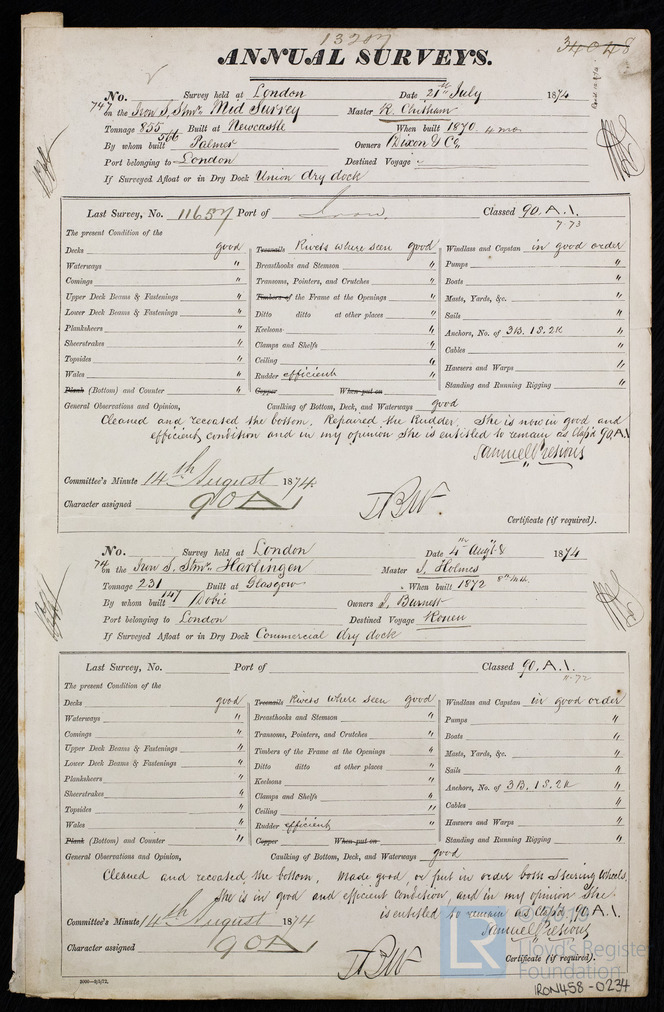 13207
34048
ANNUAL SURVEYS.
No. Survey held at London Date 21st July 1874
747 on the Iron S. Stmr. Mid Surrey Master R. Chitham
Tonnage 855 566 Built at Newcastle When built 1870. 4 mo.
By whom built Palmer Owners Dixon & Co.
Port belonging to London Destined Voyage
If Surveyed Afloat or in Dry Dock Union dry dock
Last Survey, No. 11657 Port of Classed 90. A. 1.
7.73
The present Condition of the
Decks good Treenails Rivets where seen good Windlass and Capstan in good order
Waterways " Breasthooks and Stemson " Pumps "
Comings " Transoms, Pointers, and Crutches " Boats "
Upper Deck Beams & Fastenings " Timbers of the Frame at the Openings " Masts, Yards, &c. "
Lower Deck Beams & Fastenings " Ditto ditto at other places " Sails "
Planksheers " Keelsons " Anchors, No. of 3B. 1S. 2K "
Sheerstrakes " Clamps and Shelfs " Cables "
Topsides " Ceiling " Hawsers and Warps "
Wales " Rudder efficient " Standing and Running Rigging "
Plank (Bottom) and Counter " Copper When put on
General Observations and Opinion, Caulking of Bottom, Deck, and Waterways good
Cleaned and recoated the bottom. Repaired the Rudder. She is now in good and
efficient condition and in my opinion She is entitled to remain as Class'd 90. A. 1
Samuel Presious
Committee's Minute 14th August 1874
Character assigned 90A1
Certificate (if required).
No. Survey held at London Date 4th Aug't 1874
74 on the Iron S. Stmr. Harlingen Master J. Holmes
Tonnage 231 147 Built at Glasgow When built 1872 8th Mth.
By whom built Dobie Owners J. Burnett
Port belonging to London Destined Voyage Rouen
If Surveyed Afloat or in Dry Dock Commercial dry dock
Last Survey, No. Port of Classed 90. A. 1.
11.72
The present Condition of the
Decks good Treenails Rivets where seen good Windlass and Capstan in good order
Waterways " Breasthooks and Stemson " Pumps "
Comings " Transoms, Pointers, and Crutches " Boats "
Upper Deck Beams & Fastenings " Timbers of the Frame at the Openings " Masts, Yards, &c. "
Lower Deck Beams & Fastenings " Ditto ditto at other places " Sails "
Planksheers " Keelsons " Anchors, No. of 3B. 1S. 2K "
Sheerstrakes " Clamps and Shelfs " Cables "
Topsides " Ceiling " Hawsers and Warps "
Wales " Rudder efficient " Standing and Running Rigging "
Plank (Bottom) and Counter " Copper When put on
General Observations and Opinion, Caulking of Bottom, Deck, and Waterways good
Cleaned and recoated the bottom. Made good or put in order both Steering Wheels.
She is in good and efficient Condition, and in my opinion She
is entitled to remain as Class'd 90. A. 1.
Samuel Presious
Committee's Minute 14th August 1874
Character assigned 90A1
Certificate (if required).
LR
© 2019
Lloyd's Register
Foundation
IRON458-0234